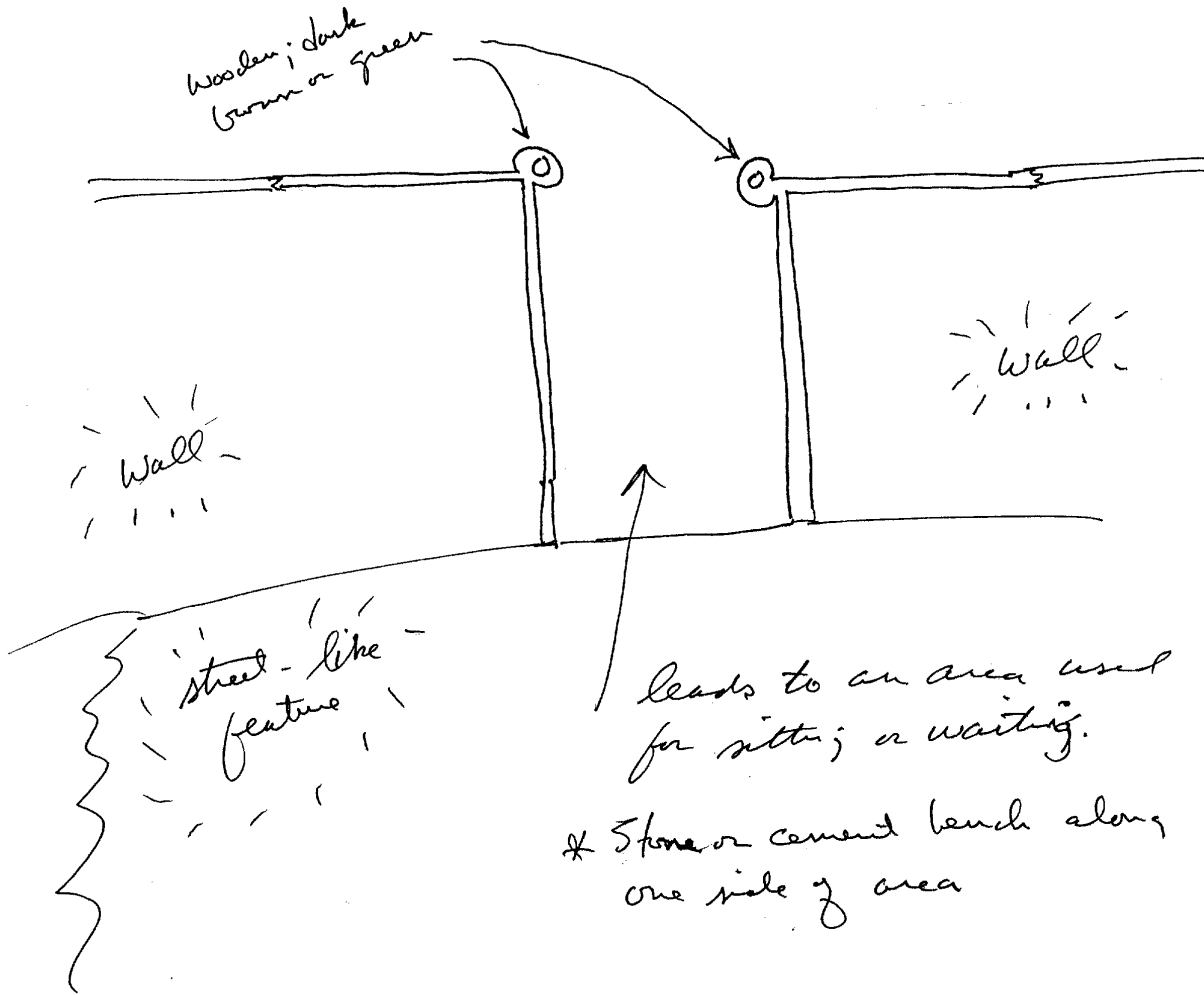 wooden; dark
brown or green
wall
wall
street-like
feature
leads to an area used
for sitting or waiting.
* Stone or cement bench along
one side of area